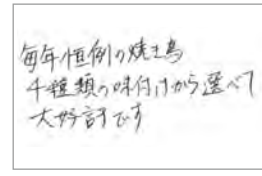 毎年恒例の焼き鳥
千種類の味付けから選べて
大好評です